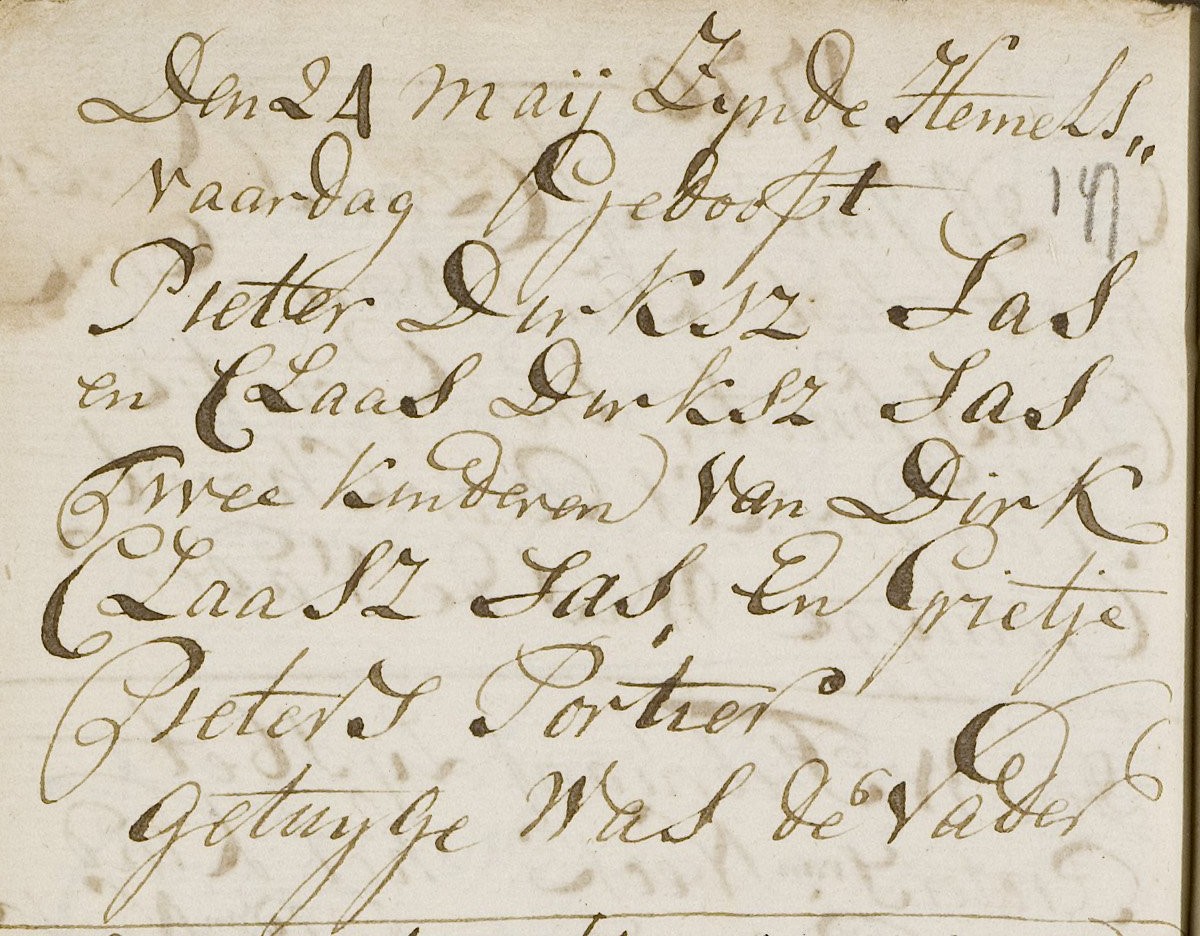 Den 24 Maij Zynde Hemels„
vaardag Gedoopt
147
Pieter Dirksz Jas
en Claas Dirksz Jas
Twee kinderen van Dirk
Claasz Jas, En Grietje
Pieters Portier
getuyge was de Vader